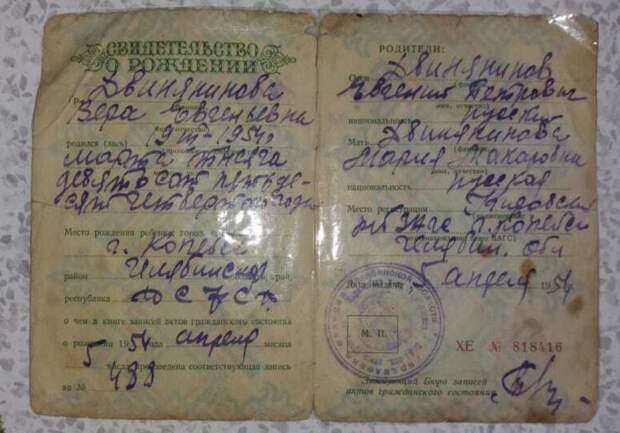 СВИДЕТЕЛЬСТВО
О РОЖДЕНИИ
Двинянинова
Вера Евгеньевна
родился (лась) 1954
марта тысяча
девятьсот пятьде-
сят четвертого года
Место рождения ребенка: город,
г. Копейск
район Челябинская край,
республика РСФСР
о чем в книге записей актов гражданского состояния
о рождении 1954 года апреля месяца
5 числа произведена соответствующая запись
за № 438
РОДИТЕЛИ:
Отец Двинянинов
Евгений Петрович
(имя, отчество)
национальность русский
Мать Двинянинова
Мария Макаровна
(имя, отчество)
национальность русская
Место регистрации
ЗАГС г. Копейск
Челябин. обл
Дата выдачи 5 апреля 1954
М. П.
ХЕ № 818416
Заведующий Бюро записей
актов гражданского состояния